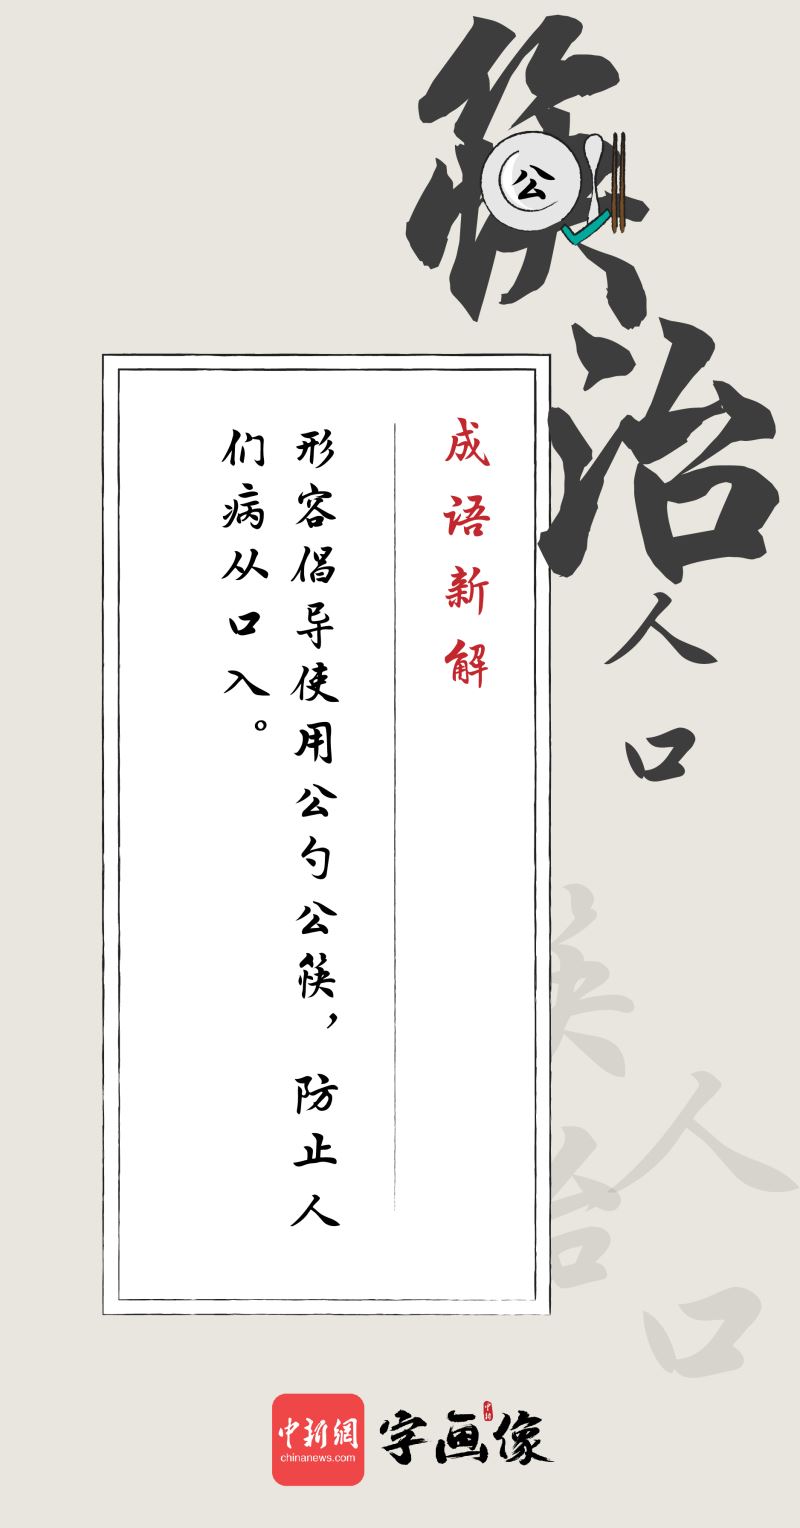 筷治人口
公
成语新解
形容倡导使用公勺公筷，防止人
们病从口入。
筷治人口
中新網
chinanews.com
字画像